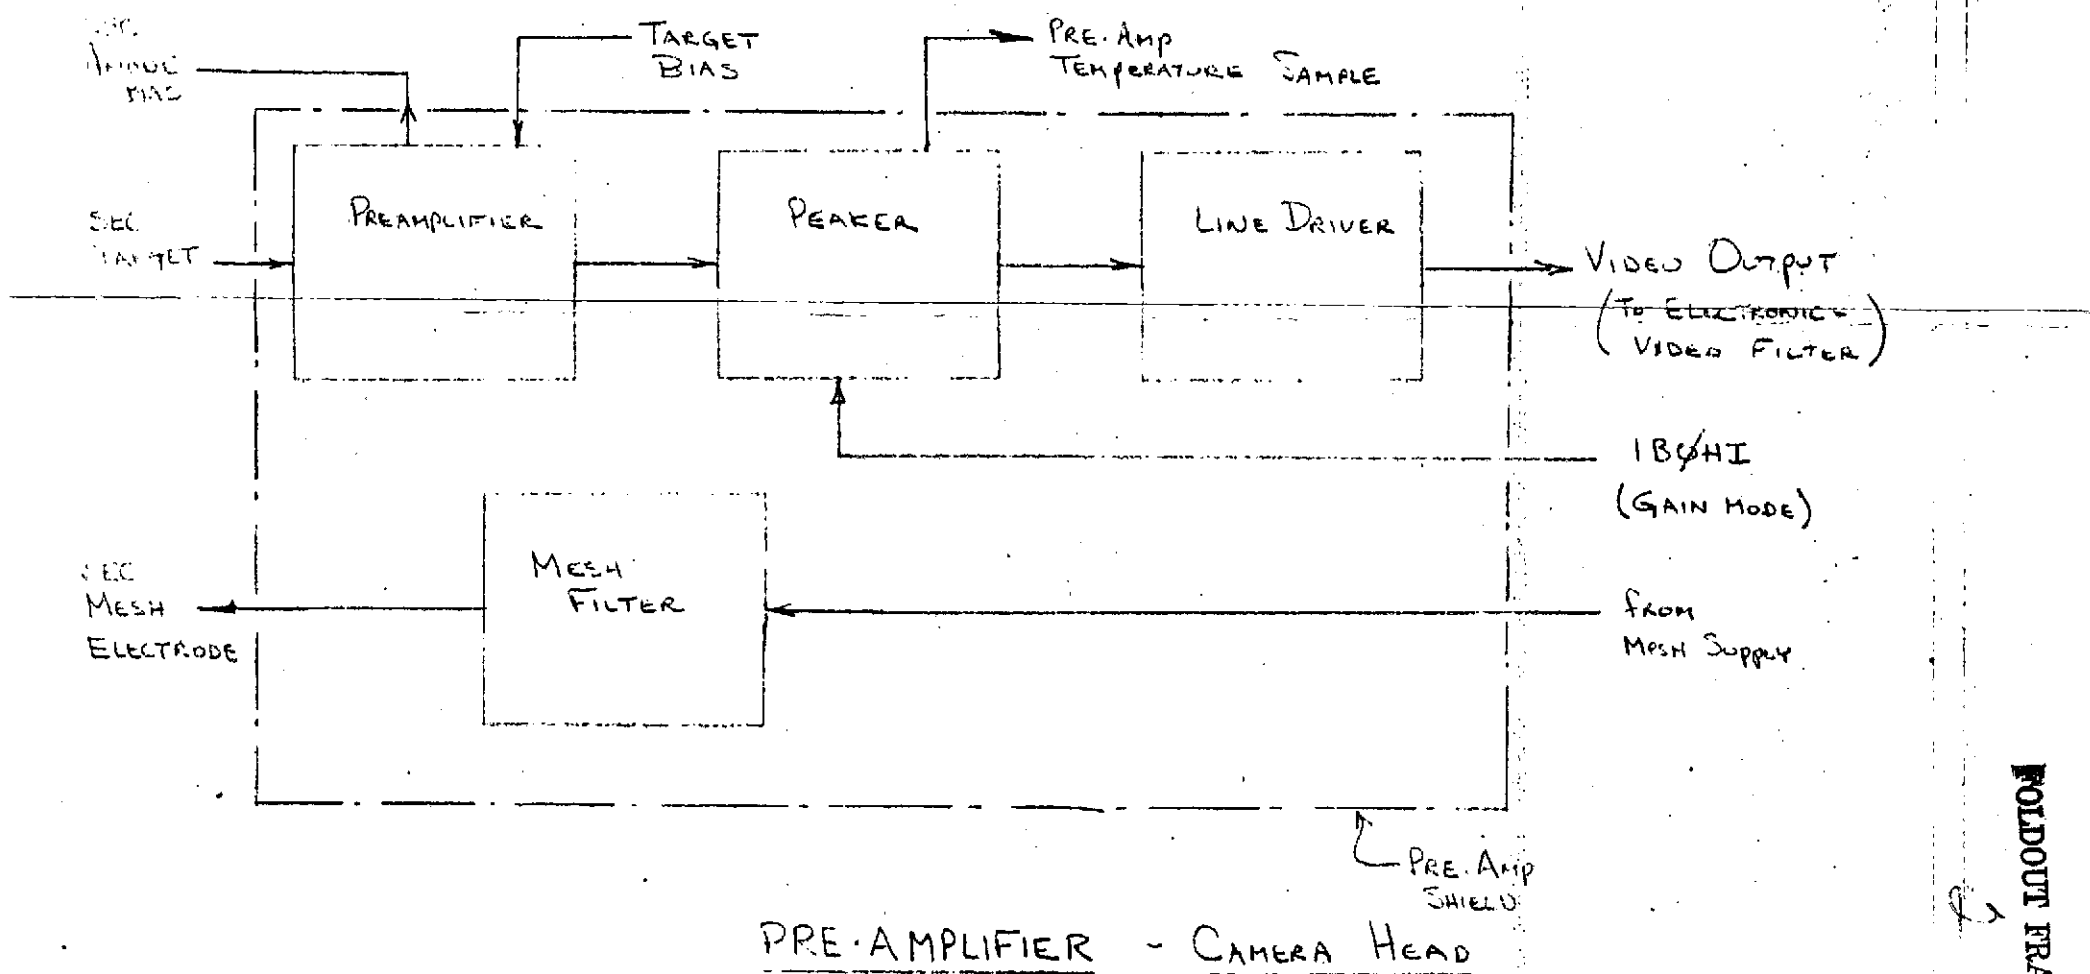 TARGET
BIAS
PRE-AMP
TEMPERATURE SAMPLE
BIAS
SEC
TARGET
PREAMPLIFIER
PEAKER
LINE DRIVER
VIDEO OUTPUT
(TO ELECTRONICS
VIDEO FILTER)
1BØHI
(GAIN MODE)
SEC
MESH
ELECTRODE
MESH
FILTER
FROM
MESH SUPPLY
PRE-AMP
SHIELD
PRE-AMPLIFIER - CAMERA HEAD
FOLDOUT